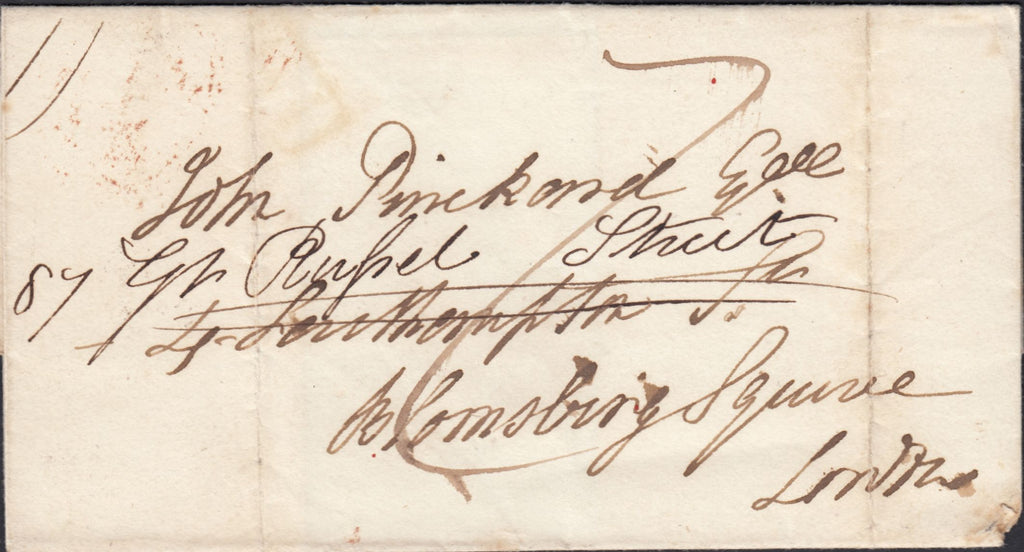 John Pinckard Esqre
87 Gt Russel Street
Southampton St
Blomsbury Square
London